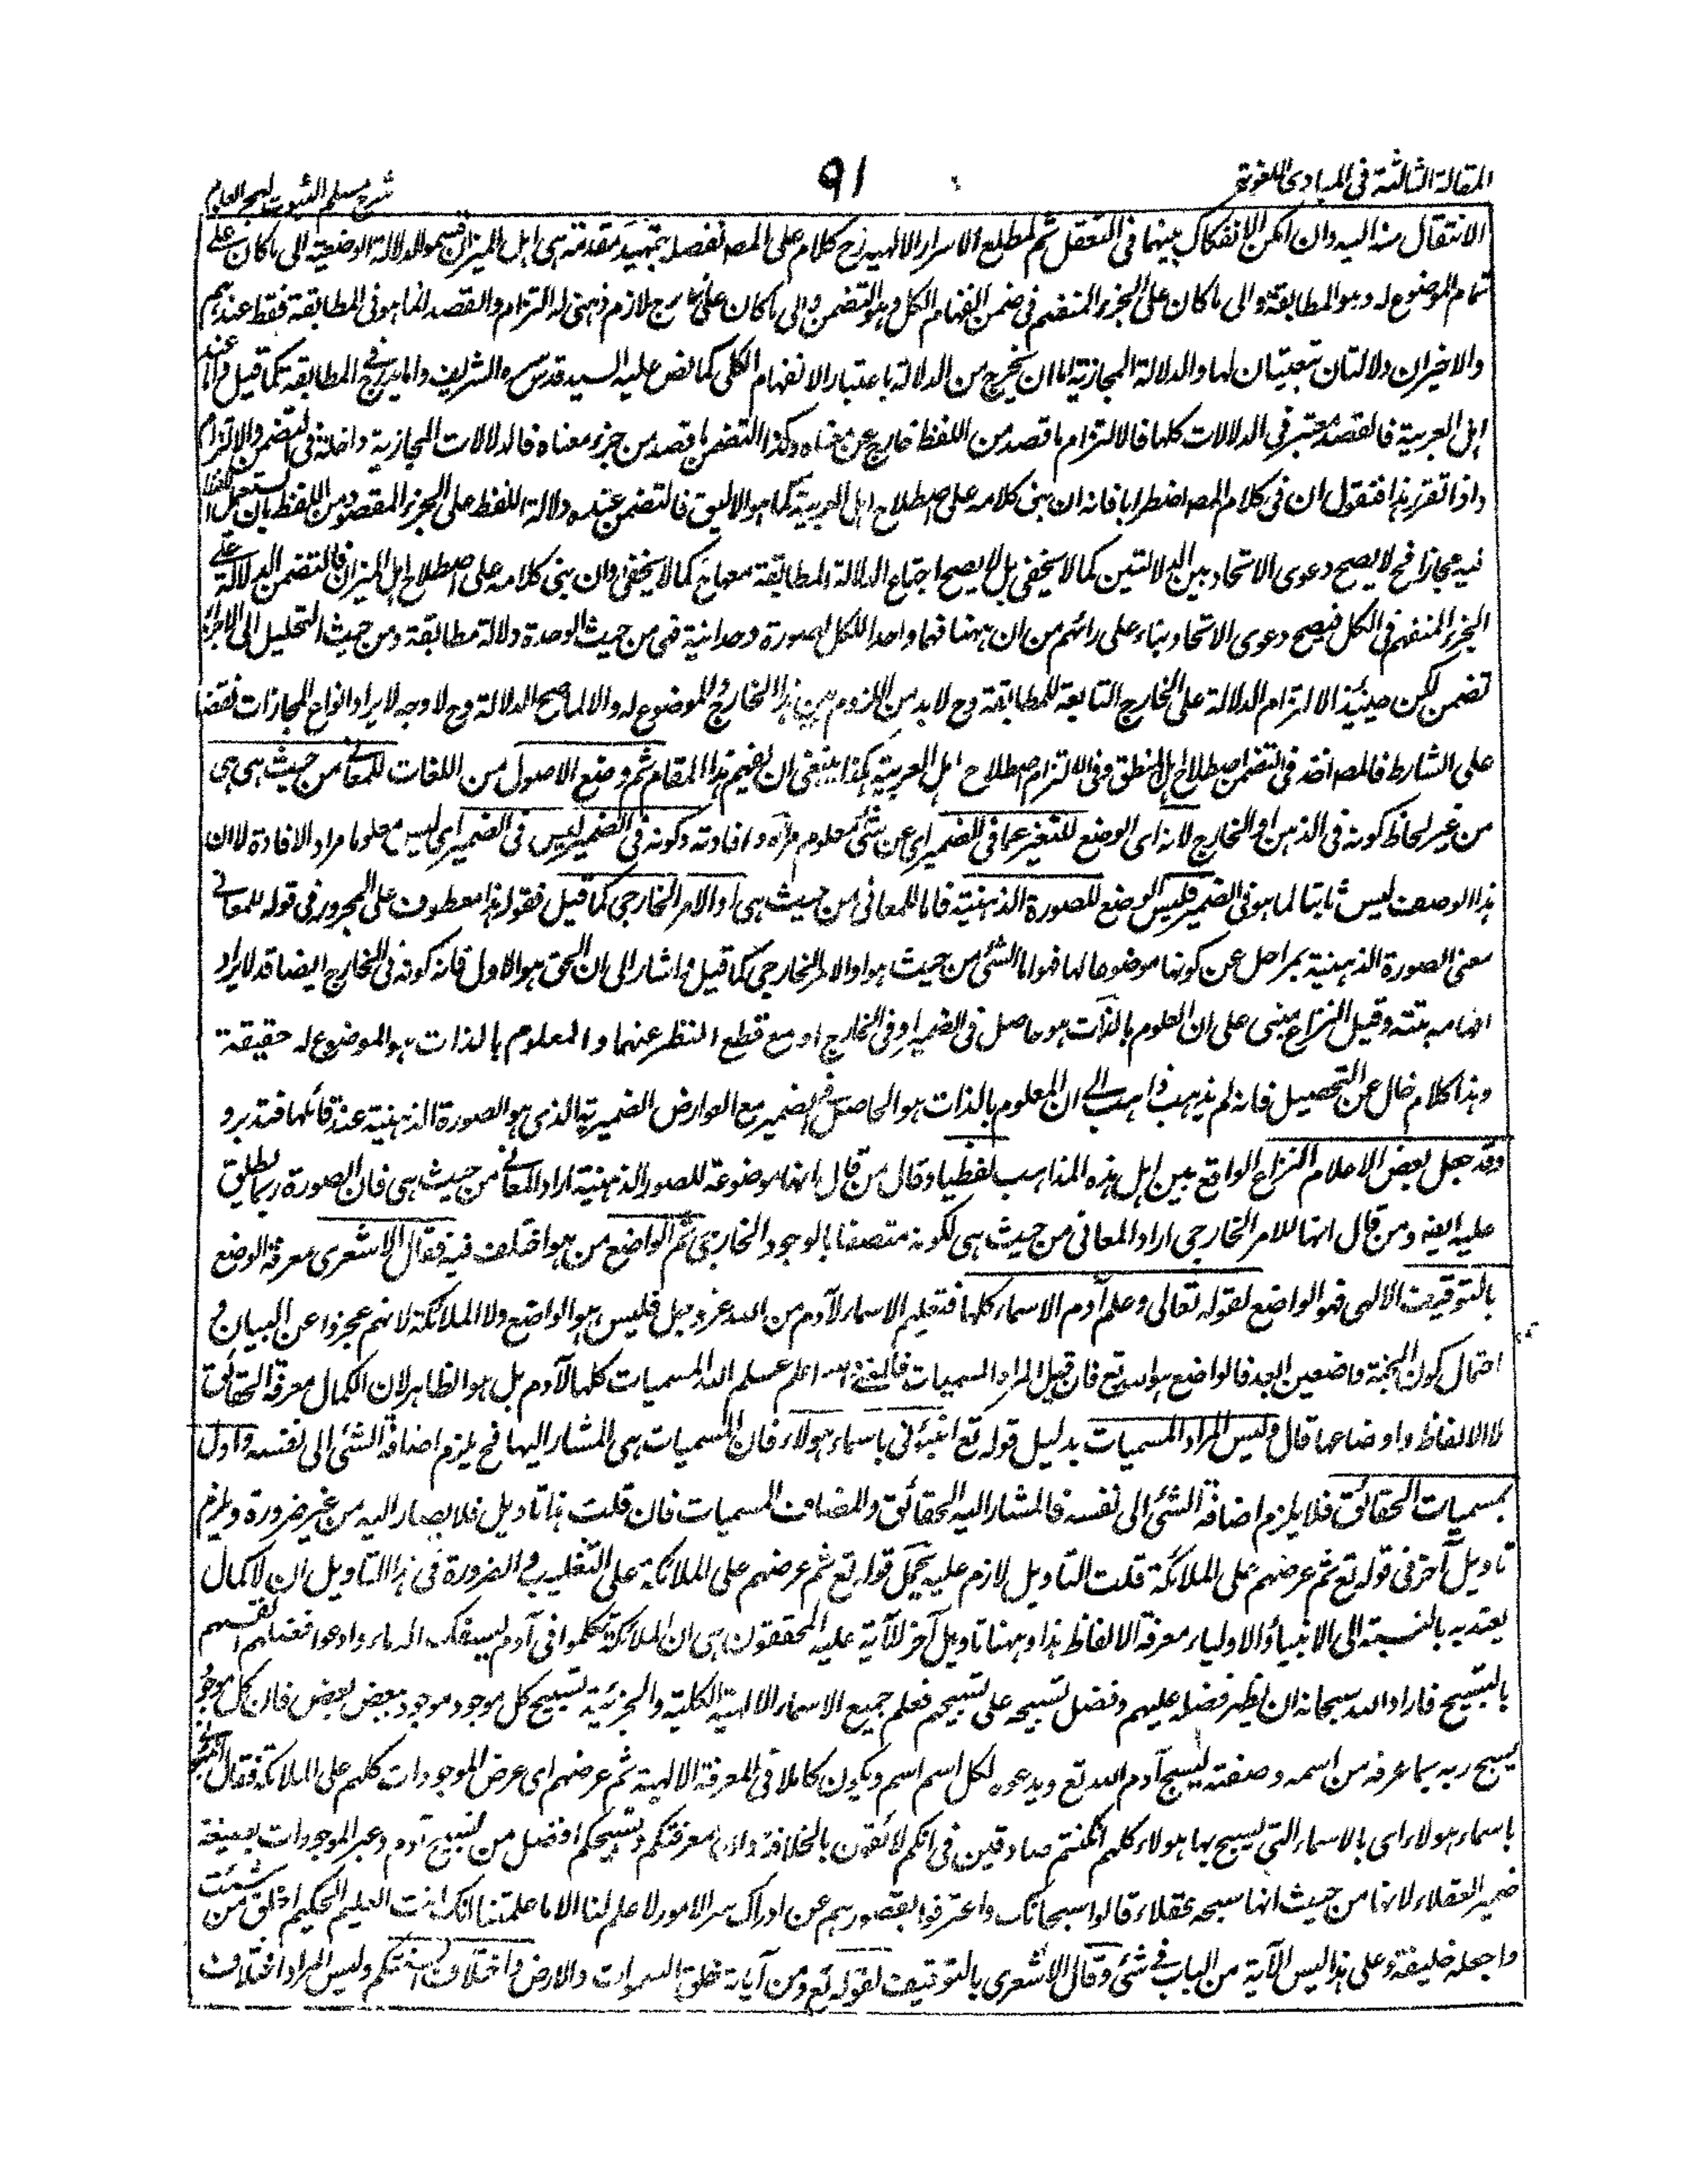 المقالة الثالثة فى المبادى اللغوية
٩١
شرح مسلم الثبوت لبحر العلوم
الانتقال منه اليه وان امكن الانفكاك بينهما فى التعقل ثم لمطلع الاسرار الالهية زح كلام على المصـ نفصله بتمهيد مقدمة هى اهل الميزان قسموا الدلالة الوضعية الى ما كان على
تمام الموضوع له وهو المطابقة والى ما كان على الجزء المنفهم فى ضمن انفهام الكل وهو التضمن والى ما كان على خارج لازم ذهنى له التزام والقصد انما هو فى المطابقة فقط عندهم
والاخيران دلالتان تبعيتان لها والدلالة المجازية اما ان يخرج من الدلالة باعتبار الانفهام الكلى كما نص عليه السيد قدس سره الشريف واما يدرج فى المطابقة كما قيل واما عند
اهل العربية فالقصد معتبر فى الدلالات كلها فالالتزام ما قصد من اللفظ خارج عن معناه وكذا التضمن ما قصد من جزء معناه فالدلالات المجازية داخلة فى التضمن والالتزام
واذا تقرر هذا فنقول ان فى كلام المصـ اضطرابا فانه ان بنى كلامه على اصطلاح اهل العربية كما هو الاليق فالتضمن عنده دلالة اللفظ على الجزء المقصود من اللفظ بان يستعمل اللفظ
فيه مجازا فح لا يصح دعوى الاتحاد بين الدلالتين كما لا يخفى بل لا يصح اجتماع الدلالة المطابقة معها ح كما لا يخفى وان بنى كلامه على اصطلاح اهل الميزان فالتضمن الدلالة على
الجزء المنفهم فى الكل فيصح دعوى الاتحاد بناء على رائهم من ان ههنا فهما واحدا للكل بصورة وحدانية فهى من حيث الوحدة دلالة مطابقة ومن حيث التحليل الى الاجزاء
تضمن لكن حينئذ الالتزام الدلالة على الخارج التابعة للمطابقة وح لا بد من اللزوم بين هذا الخارج والموضوع له والا لما صح الدلالة وح لا وجه لايراد انواع المجازات نقضا
على الشارط فالمصـ اخذ فى التضمن اصطلاح اهل المنطق وفى الالتزام اصطلاح اهل العربية هكذا ينبغى ان يفهم هذا المقام ثم وضع الاصول من اللغات للمعانى من حيث هى هى
من غير لحاظ كونه فى الذهن او الخارج لانه اى الوضع للتعبير عما فى الضمير اى عن شئ معلوم مراد افادته وكونه فى الضمير ليس فى الضمير اى ليس معلوما مراد الافادة لان
هذا الوصف ليس ثابتا لما هو فى الضمير فليس الوضع للصورة الذهنية فاما للمعانى من حيث هى او الامر الخارجى كما قيل فقوله هذا معطوف على المجرور فى قوله للمعانى
معنى الصورة الذهنية بمراحل عن كونها موضوعا لها فهو اما الشئ من حيث هو او الامر الخارجى كما قيل واشار الى ان الحق هو الاول فانه كونه فى الخارج ايضا قد لا يراد
افهامه بتة وقيل النزاع مبنى على ان المعلوم بالذات هو حاصل فى الضمير او فى الخارج او مع قطع النظر عنهما والمعلوم بالذات هو الموضوع له حقيقة
وهذا كلام خال عن التحصيل فانه لم يذهب ذاهب الى ان المعلوم بالذات هو الحاصل فى الضمير مع العوارض الضميرية الذى هو الصورة الذهنية عند قائلها فتدبر و
وقد جعل بعض الاعلام النزاع الواقع بين اهل هذه المذاهب لفظيا وقال من قال انها موضوعة للصور الذهنية اراد المعانى من حيث هى فان الصورة ربما يطلق
عليه ايضا ومن قال انها للامر الخارجى اراد المعانى من حيث هى لكونه متصفا بالوجود الخارجى ثم الواضع من هو اختلف فيه فقال الاشعرى معرفة الوضع
بالتوقيف الالهى فهو الواضع لقوله تعالى وعلم آدم الاسماء كلها فتعليم الاسماء لآدم من الله عز وجل فليس هو الواضع ولا الملائكة لانهم عجزوا عن البيان و
احتمال كون الجنة واضعين ابعد فالواضع هو الله تع فان قيل المراد المسميات فالمعنى والله اعلم علم الله المسميات كلها لآدم بل هو الظاهر لان الكمال معرفة الحقائق
لا الالفاظ واوضاعها قال وليس المراد المسميات بدليل قوله تع انبئونى باسماء هولاء فان المسميات هى المشار اليها فح يلزم اضافة الشئ الى نفسه واول
بمسميات الحقائق فلا يلزم اضافة الشئ الى نفسه فالمشار اليه الحقائق والمضاف المسميات فان قلت هذا تاويل فلا يصار اليه من غير ضرورة ويلزم
تاويل آخر فى قوله تع ثم عرضهم على الملائكة قلت التاويل لازم عليه يحمل قوله تع ثم عرضهم على الملائكة على التغليب والضرورة فى هذا التاويل ان لا كمال
يعتد به بالنسبة الى الانبياء والاولياء معرفة الالفاظ هذا وههنا تاويل آخر للآية عليه المحققون هى ان الملائكة تكلموا فى آدم بسفك الدماء وادعوا فضلهم انفسهم
بالتسبيح فاراد الله سبحانه ان يظهر فضله عليهم وفضل تسبيحه على تسبيحهم فعلم جميع الاسماء الالهية الكلية والجزئية تسبيح كل موجود موجود ببعض بعض فان كل موجود
يسبح ربه بما عرفه من اسمه وصفته ليسبح آدم الله تع ويدعوه لكل اسم اسم ويكون كاملا فى المعرفة الالهية ثم عرضهم اى عرض الموجودات كلهم على الملائكة فقال انبئونى
باسماء هولاء اى بالاسماء التى يسبح بها هولاء كلهم ان كنتم صادقين فى انكم لائقون بالخلافة وان معرفتكم وتسبيحكم افضل من تسبيح آدم وعبر الموجودات بصيغة
ضمير العقلاء لانها من حيث انها مسبحة عقلاء قالوا سبحانك واعترفوا بقصورهم عن ادراك سر الامور لا علم لنا الا ما علمتنا انك انت العليم الحكيم اخلق من شئت
واجعله خليفة وعلى هذا ليس الآية من الباب فى شئ وقال الاشعرى بالتوقيف لقوله تع ومن آياته خلق السموات والارض واختلاف السنتكم وليس المراد اختلاف